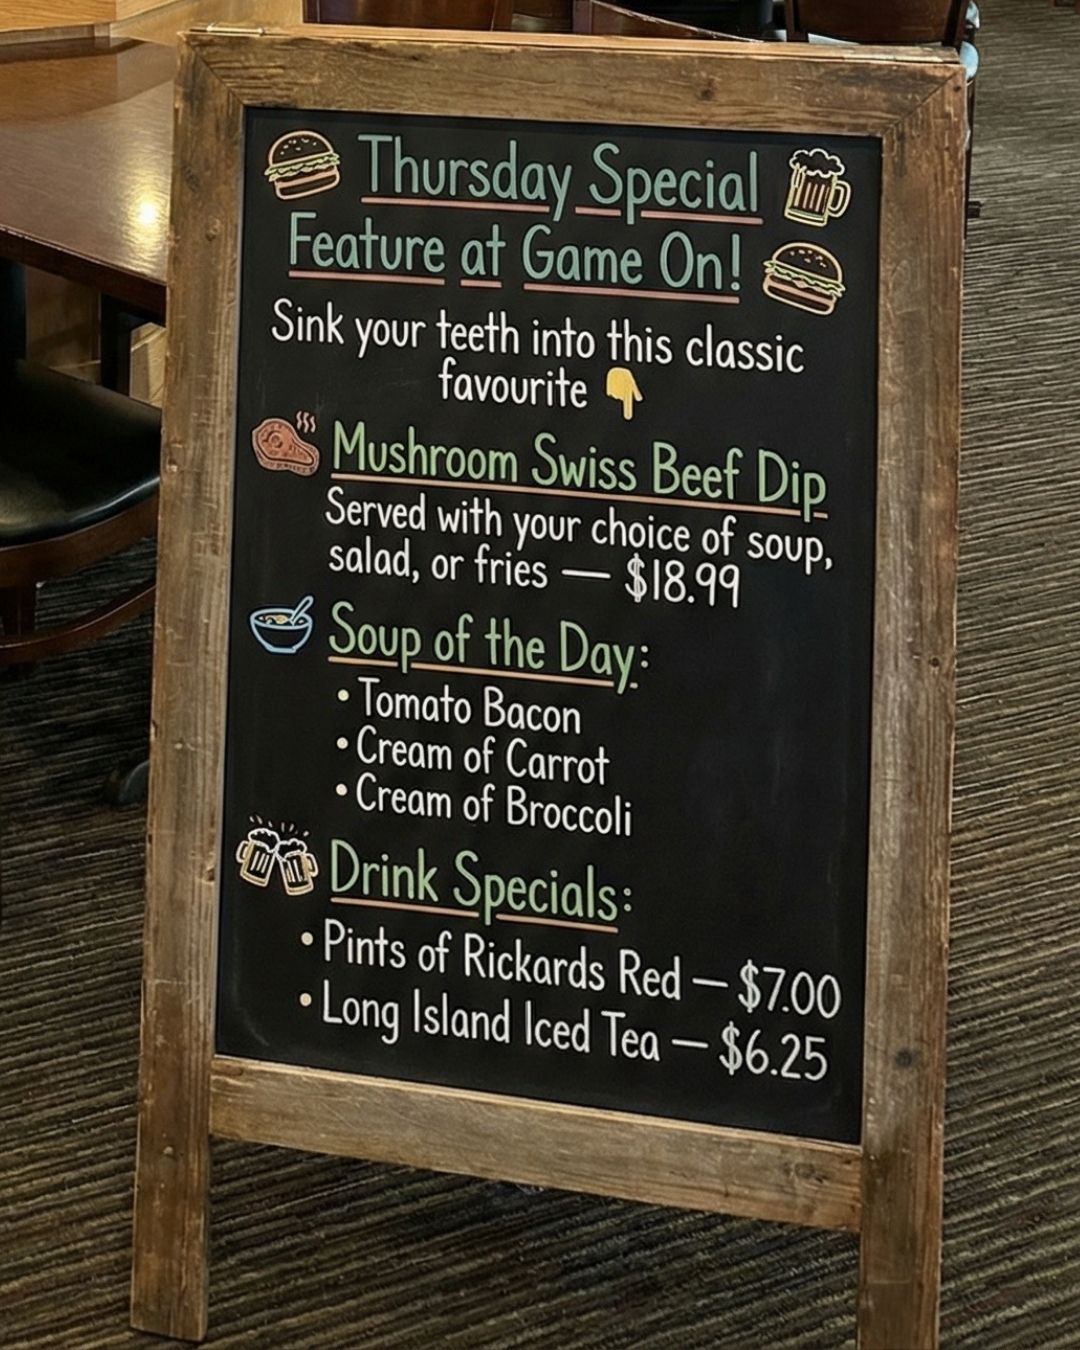 Thursday Special
Feature at Game On!
Sink your teeth into this classic
favourite 👇
Mushroom Swiss Beef Dip
Served with your choice of soup,
salad, or fries — $18.99
Soup of the Day:
• Tomato Bacon
• Cream of Carrot
• Cream of Broccoli
Drink Specials:
• Pints of Rickards Red — $7.00
• Long Island Iced Tea — $6.25